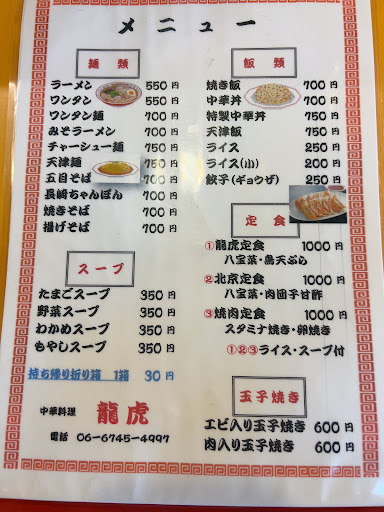 メニュー
麺類
ラーメン 550円
ワンタン 550円
ワンタン麺 700円
みそラーメン 700円
チャーシュー麺 750円
天津麺 750円
五目そば 700円
長崎ちゃんぽん 700円
焼きそば 700円
揚げそば 700円
スープ
たまごスープ 350円
野菜スープ 350円
わかめスープ 350円
もやしスープ 350円
持ち帰り折り箱 1箱 30円
中華料理 龍虎
電話 06-6745-4997
飯類
焼き飯 700円
中華丼 700円
特製中華丼 750円
天津飯 750円
ライス 250円
ライス(小) 200円
餃子(ギョウザ) 250円
定食
①龍虎定食 1000円
八宝菜・鳥天ぷら
②北京定食 1000円
八宝菜・肉団子甘酢
③焼肉定食 1000円
スタミナ焼き・卵焼き
①②③ライス・スープ付
玉子焼き
エビ入り玉子焼き 600円
肉入り玉子焼き 600円